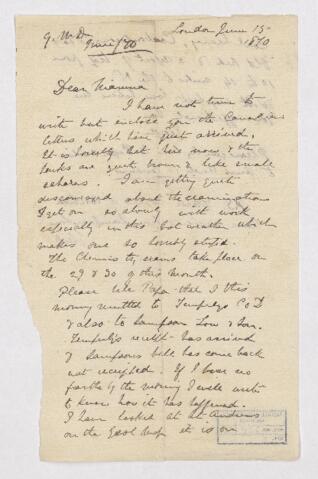 G. M. D.
London June 15
1870
June /70
Dear Mamma
I have not time to
write but enclose you the Canadian
letters which have just arrived.
It is horribly hot here now & the
parks are quite brown & like small
saharas. I am getting quite
discouraged about the examinations
I get on so slowly with work
especially in this hot weather which
makes one so horribly stupid.
The Chemistry exams take place on
the 29 & 30 of this month.
Please tell Papa that I this
morning remitted to Co
& also to Sampson Low & Son.
receipt has arrived
& Sampsons bill has come back
not receipted. If I hear no
farther by the morning I will write
to know how it has happened.
I have looked at St Andrews
on the Map it is on